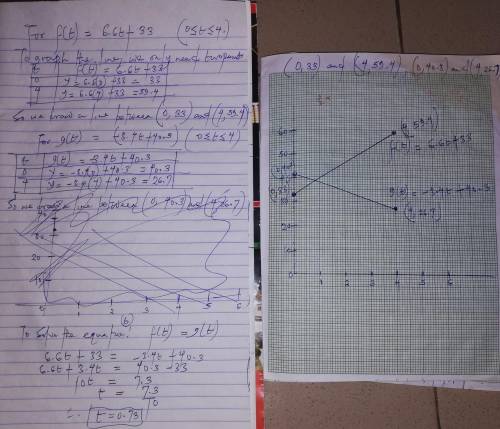 For f(t) = 6.6t + 33 (0≤t≤4.)
To graph the line, we only need two points
t f(t) = 6.6t + 33
0 Y = 6.6(0) + 33 = 33
4 Y = 6.6(4) + 33 = 59.4
So we draw a line between (0, 33) and (4, 59.4)
For g(t) = -3.4t + 40.3 (0≤t≤4)
t g(t) = -3.4t + 40.3
0 Y = -3.4(0) + 40.3 = 40.3
4 Y = -3.4(4) + 40.3 = 26.7
So we draw a line between (0, 40.3) and (4, 26.7)
30
20
0 1 2 3 4 5 6
(b)
To Solve the equation f(t) = g(t)
6.6t + 33 = -3.4t + 40.3
6.6t + 3.4t = 40.3 - 33
10t = 7.3
t = 7.3
10
∴ t = 0.73
(0, 33) and (4, 59.4) (0, 40.3) and (4, 26.7)
60
(4, 59.4)
f(t) = 6.6t + 33
50
(0,33)
g(t) = -3.4t + 40.3
(4, 26.7)
20
10
0
1 2 3 4 5 6